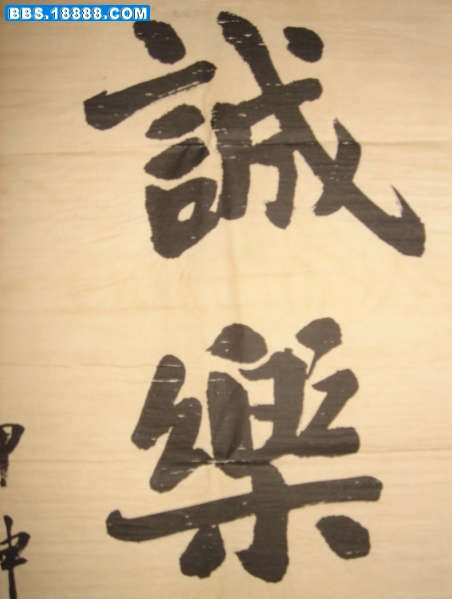 BBS.18888.COM
誠樂
甲申